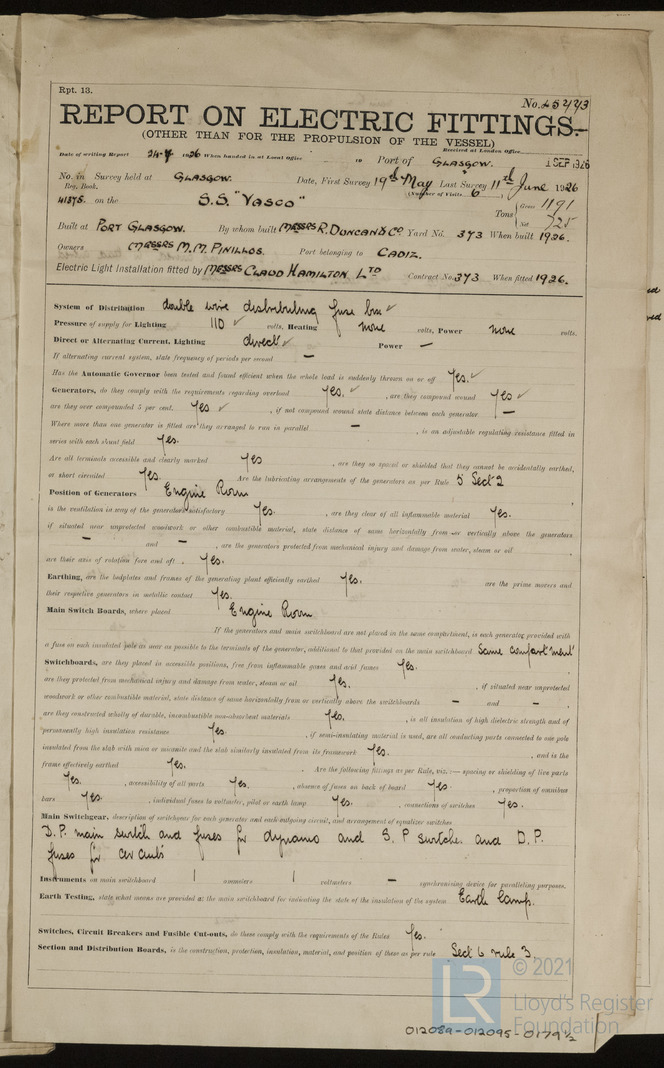 Rpt. 13.
No. 45443
REPORT ON ELECTRIC FITTINGS.
(OTHER THAN FOR THE PROPULSION OF THE VESSEL)
Received at London Office
Date of writing Report 24-7 1926 When handed in at Local Office 19 Port of GLASGOW. 1 SEP 1926
No. in Survey held at GLASGOW. Date, First Survey 19th May Last Survey 11th June 1926
Reg. Book. (Number of Visits 6)
41375. on the S.S. "VASCO" Tons { Gross 1191
Net 725
Built at PORT GLASGOW. By whom built MESSRS R. DUNCAN & CO Yard No. 373 When built 1926.
Owners MESSRS M.M. PINILLOS. Port belonging to CADIZ.
Electric Light Installation fitted by MESSRS CLAUD HAMILTON LTD Contract No. 373 When fitted 1926.
System of Distribution double wire distributing fuse box ✓
Pressure of supply for Lighting 110 ✓ volts, Heating none volts, Power none volts.
Direct or Alternating Current, Lighting direct ✓ Power —
If alternating current system, state frequency of periods per second —
Has the Automatic Governor been tested and found efficient when the whole load is suddenly thrown on or off Yes. ✓
Generators, do they comply with the requirements regarding overload Yes. ✓ , are they compound wound Yes ✓
are they over compounded 5 per cent. Yes ✓ , if not compound wound state distance between each generator —
Where more than one generator is fitted are they arranged to run in parallel — , is an adjustable regulating resistance fitted in
series with each shunt field Yes.
Are all terminals accessible and clearly marked Yes , are they so spaced or shielded that they cannot be accidentally earthed,
or short circuited Yes. Are the lubricating arrangements of the generators as per Rule 5 Sect 2
Position of Generators Engine Room
is the ventilation in way of the generators satisfactory Yes. , are they clear of all inflammable material Yes.
if situated near unprotected woodwork or other combustible material, state distance of same horizontally from or vertically above the generators
— and — , are the generators protected from mechanical injury and damage from water, steam or oil ,
are their axis of rotation fore and aft . Yes.
Earthing, are the bedplates and frames of the generating plant efficiently earthed Yes. are the prime movers and
their respective generators in metallic contact Yes.
Main Switch Boards, where placed Engine Room
If the generators and main switchboard are not placed in the same compartment, is each generator provided with
a fuse on each insulated pole as near as possible to the terminals of the generator, additional to that provided on the main switchboard Same compartment
Switchboards, are they placed in accessible positions, free from inflammable gases and acid fumes Yes. ,
are they protected from mechanical injury and damage from water, steam or oil Yes. , if situated near unprotected
woodwork or other combustible material, state distance of same horizontally from or vertically above the switchboards — and — ,
are they constructed wholly of durable, incombustible non-absorbent materials Yes. , is all insulation of high dielectric strength and of
permanently high insulation resistance Yes. , if semi-insulating material is used, are all conducting parts connected to one pole
insulated from the slab with mica or micanite and the slab similarly insulated from its framework Yes. , and is the
frame effectively earthed Yes. . Are the following fittings as per Rule, viz.:— spacing or shielding of live parts
Yes. , accessibility of all parts Yes. , absence of fuses on back of board Yes. , proportion of omnibus
bars Yes. , individual fuses to voltmeter, pilot or earth lamp Yes. , connections of switches Yes.
Main Switchgear, description of switchgear for each generator and each outgoing circuit, and arrangement of equalizer switches
D.P. main switch and fuses for dynamo and S.P switche. and D.P.
fuses for circuits
Instruments on main switchboard 1 ammeters 1 voltmeters — synchronising device for paralleling purposes.
Earth Testing, state what means are provided at the main switchboard for indicating the state of the insulation of the system Earth lamp.
Switches, Circuit Breakers and Fusible Cut-outs, do these comply with the requirements of the Rules Yes.
Section and Distribution Boards, is the construction, protection, insulation, material, and position of these as per rule Sect 6 rule 3.
LR © 2021
Lloyd's Register
Foundation
012089-012095-0179½